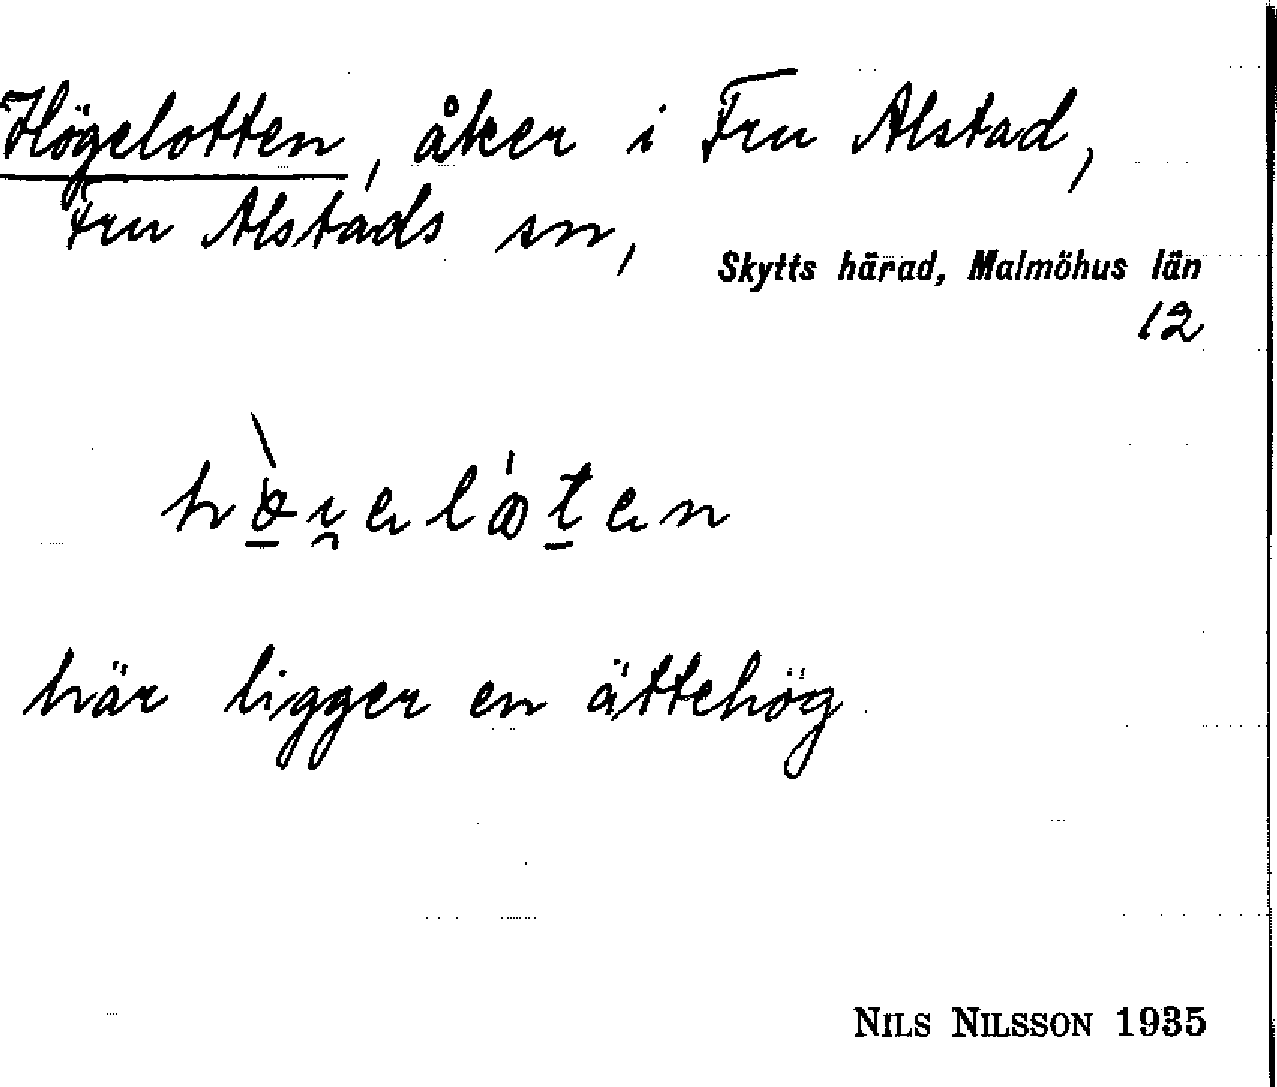 Högelotten, åker i Fru Alstad,
Fru Alstads sn,
Skytts härad, Malmöhus län
12
här ligger en ättehög
NILS NILSSON 1935